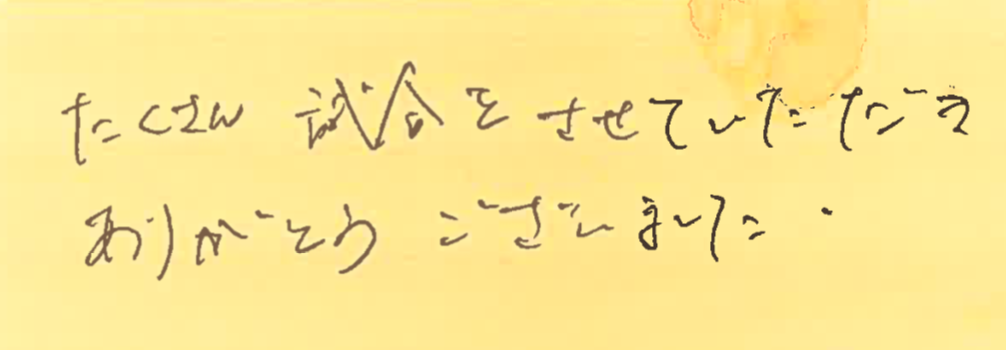 たくさん 試合をさせていただき
ありがとうございました。